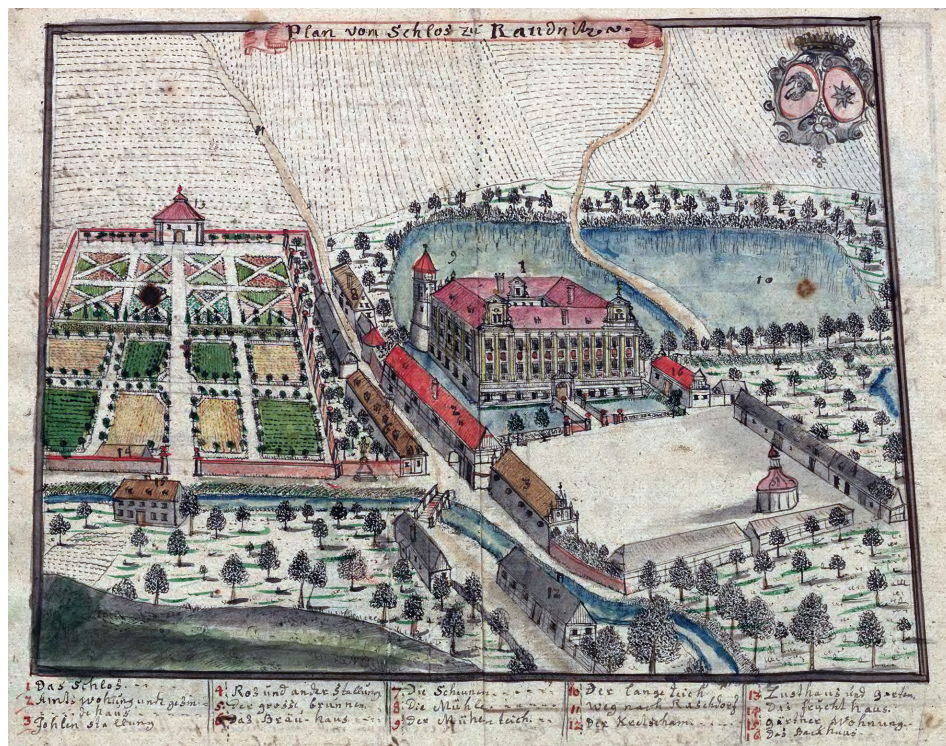 Plan von Schlos zu Raudnitz.
1 Das Schlos.
2 Amts wohnung und gesin-
de haus
3 Fohlen stallung
4. Ros und ander stallung
5. Der grosse brunnen
6. Das Bräu-haus
7. Die Scheunen
8. Die Mühle
9. Der Mühl teich
10 Der lange teich
11 Weg nach Raschdorf
12 Der Kretscham
13 Lusthaus und garten
14 Das feucht haus.
15 gärtner Wohnung.
16 Das Backhaus.